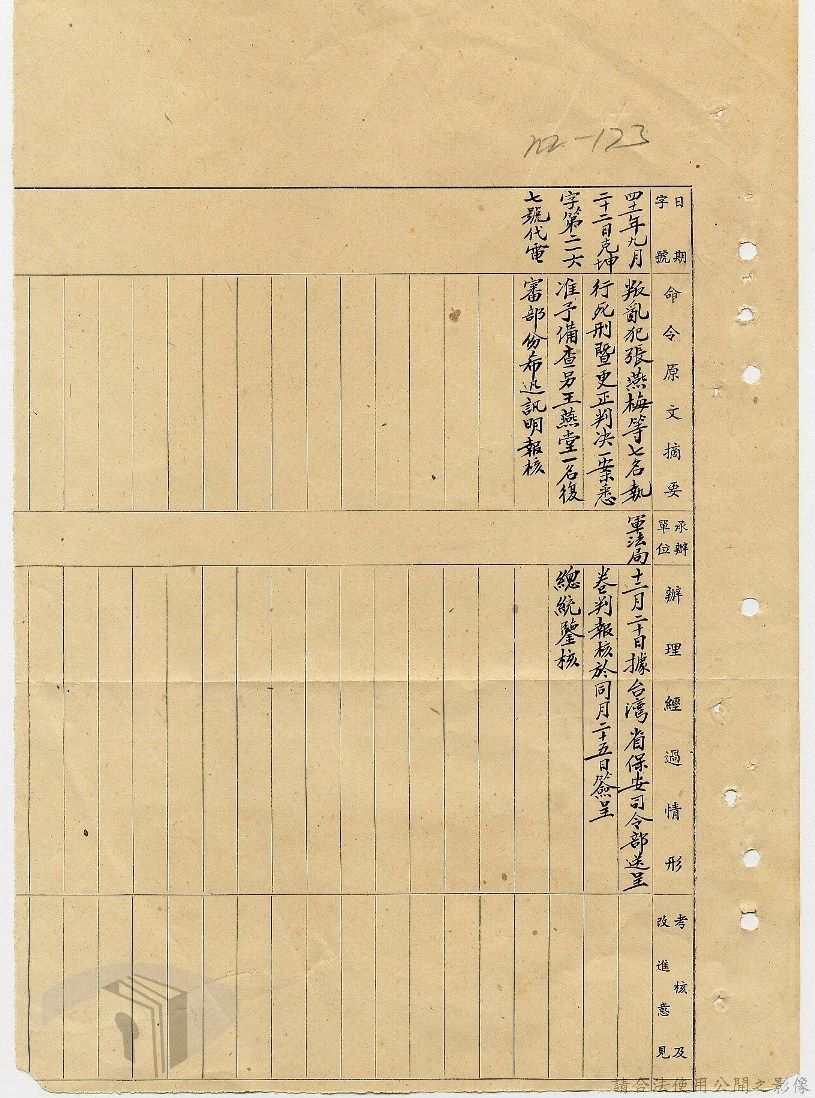 日期
字號
命令原文摘要
承辦
單位
辦理經過情形
考核及
改進意見
四十一年九月
二十二日克坤
字第二二六
七號代電
叛亂犯張燕梅等七名執
行死刑暨更正判決一案悉
准予備查另王燕堂一名復
審部份希迅訊明報核
軍法局
十二月二十日據台灣省保安司令部送呈
卷判報核於同月二十五日簽呈
總統鑒核
請合法使用公開之影像